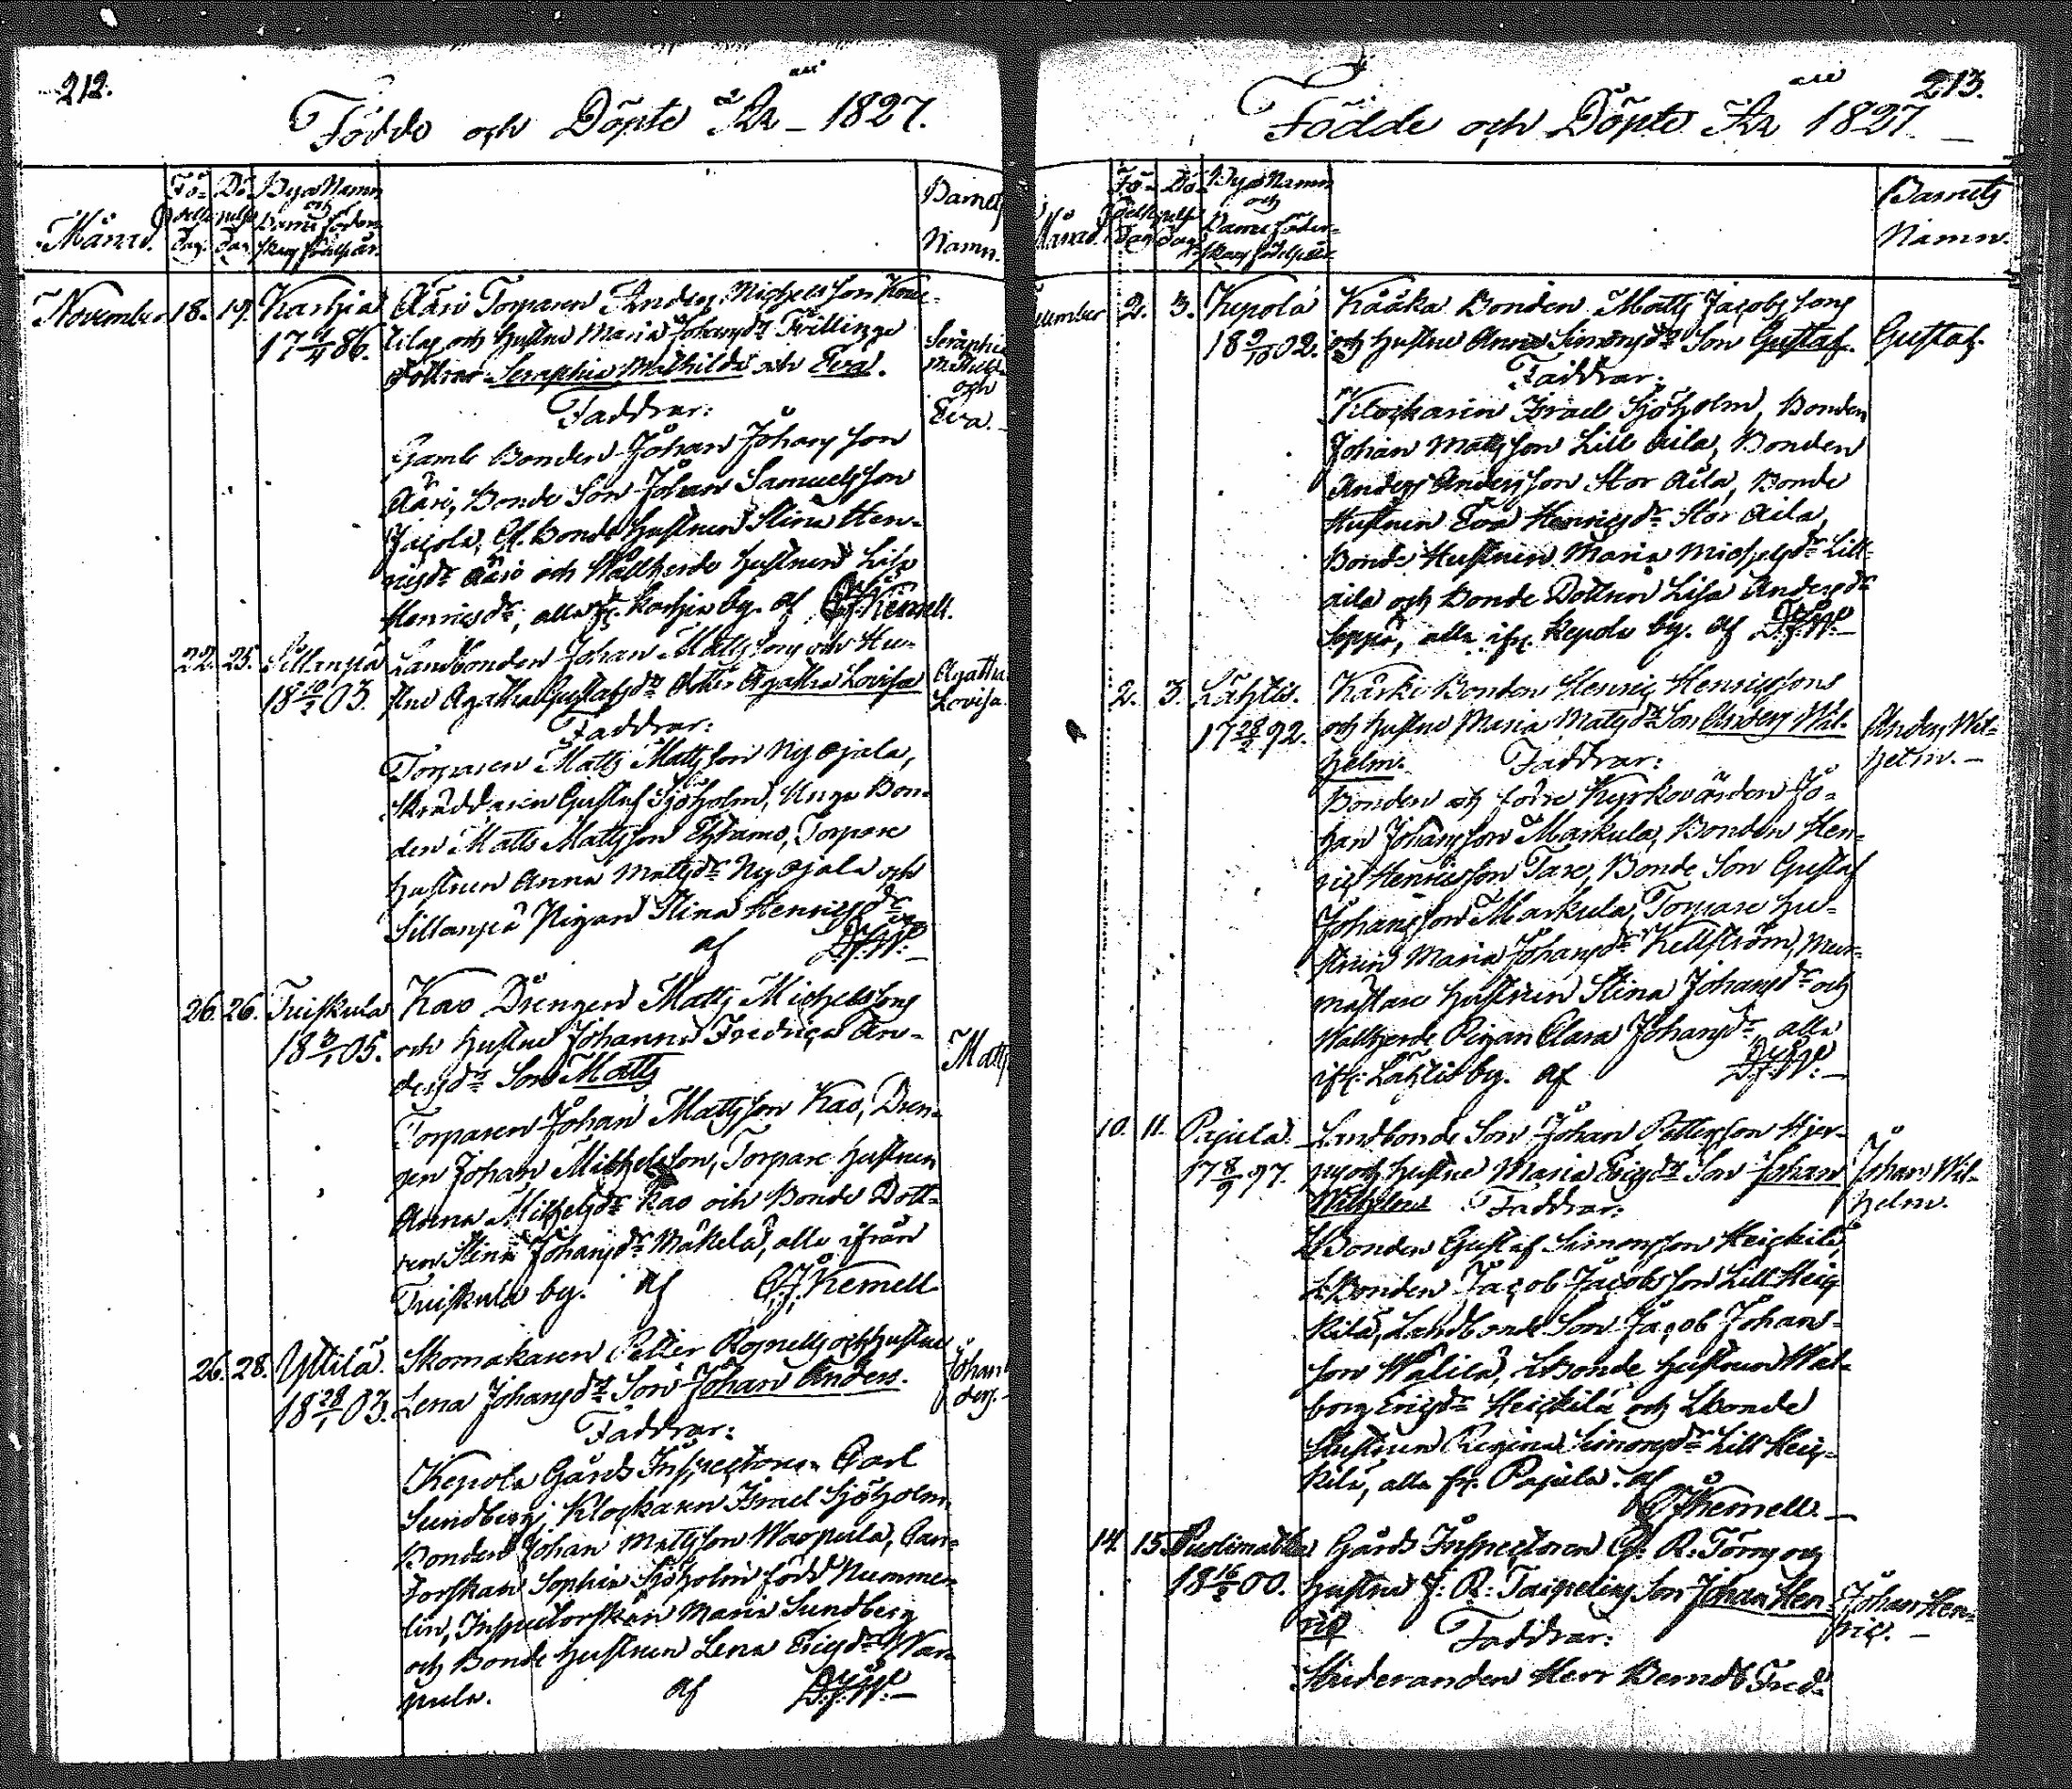 212.
Födde och Döpte År 1827.
Månad.
Fö-
delse
Dag.
Dö-
pelse
Dag
Byns Namn
och
Barns föder-
skas födelseår.
Barnets
Namn.
November 18. 19. Karhia Ääri Torparen Anders Michelsson
17 86. och Hustru Maria Johansdr Tvillinge
Döttrar Seraphia Mathilda och Eva.
Seraphia
Mathilda
och
Eva.
Faddrar:
Gamle Bonden Johan Johansson
Ääri, Bonde Son Johan Samuelsson
Jacola, Bonde Hustrun Stina Hen-
ricsdr Ääri och Wallherde Hustrun Lisa
Henricsdr, alla fr. Karhia by. af Kemell.
22. 25. Sillanpää Landbonden Johan Mattssons och Hu-
18 03. stru Agatha Gustafsdr Dotter Agatha Lovisa
Agatha
Lovisa.
Faddrar:
Torparen Matts Mattsson Ny Ojala,
Skräddaren Gustaf Sjöholm, Unge Bon-
den Matts Mattsson, Torpare
Hustrun Anna Mattsdr Ny Ojala och
Sillanpää Pigan Stina Henricsdr
af
26. 26. Tuiskula Kao Drengen Matts Michelssons
18 05. och Hustru Johanna Fredrica An-
dersdr Son Matts
Matts.
Torparen Johan Mattsson Kao, Dren-
gen Johan Michelsson, Torpare Hustrun
Anna Michelsdr Kao och Bonde Dott-
ren Stina Johansdr Mäkelä, alla ifrån
Tuiskula by. af C. J. Kemell
26. 28. Yttilä. Skomakaren Petter Rosnells och Hustru
18 28/1 03. Lena Johansdr Son Johan Anders.
Johan
ders.
Faddrar:
Kepola Gårds Inspectoren Carl
Sundberg, Klockaren Israel Sjöholm
Bonden Johan Mattsson Warpula,
Sophia Sjöholm född Numme-
lin, Inspectorskan Maria Sundberg
och Bonde Hustrun Lena Ericsdr War-
pula. af
213.
Födde och Döpte År 1827
Månad.
Fö-
delse
Dag
Dö-
pelse
Dag
Byns Namn
och
Barns föder-
skas födelseår.
Barnets
Namn.
2. 3. Kepola Kååka Bonden Matts Jacobssons
18 9/10 02. och Hustru Anna Simonsdr Son Gustaf. Gustaf.
Faddrar:
Klockaren Israel Sjöholm, Bonden
Johan Mattsson Lill Aila, Bonden
Anders Andersson Stor Aila, Bonde
Hustrun Eva Henricsdr Stor Aila,
Bonde Hustrun Maria Michelsdr Lill-
Aila och Bonde Dottren Lisa Andersdr
Seppä, alla ifr. Kepola by. af
2. 3. Lähtis. Kärki Bonden Henric Henricssons
17 28/2 92. och Hustru Maria Mattsdr Son Anders Wil-
helm.
Anders Wil-
helm.
Faddrar:
Bonden och förre Kyrkovärden Jo-
han Johansson Markula, Bonden Hen-
ric Henricsson Tare, Bonde Son Gustaf
Johansson Markula, Torpare Hu-
strun Maria Johansdr Kellström, Mur-
mästare Hustrun Stina Johansdr och
Wallherde Pigan Clara Johansdr, alla
ifr. Lähtis by. af
10. 11. Pajula. Landbonde Son Johan Pettersson Hjer-
17 8/9 97. och Hustru Maria Ericsdr Son Johan
Wilhelm
Johan Wil-
helm.
Faddrar:
LBonden Gustaf Simonsson Heickilä,
LBonden Jacob Jacobsson Lill Heic-
kilä, Landbonde Son Jacob Johans-
son Wälilä, LBonde Hustrun Wal-
borg Ericsdr Heickilä och LBonde
Hustrun Regina Simonsdr Lill Heic-
kilä, alla fr. Pajula. af
Kemell.
14. 15. Puolimatka Gårds Inspectoren R. Törn och
18 00. Hustru Son Johan Hen-
ric
Johan Hen-
ric.
Faddrar:
Studeranden Herr Berndt Fred-